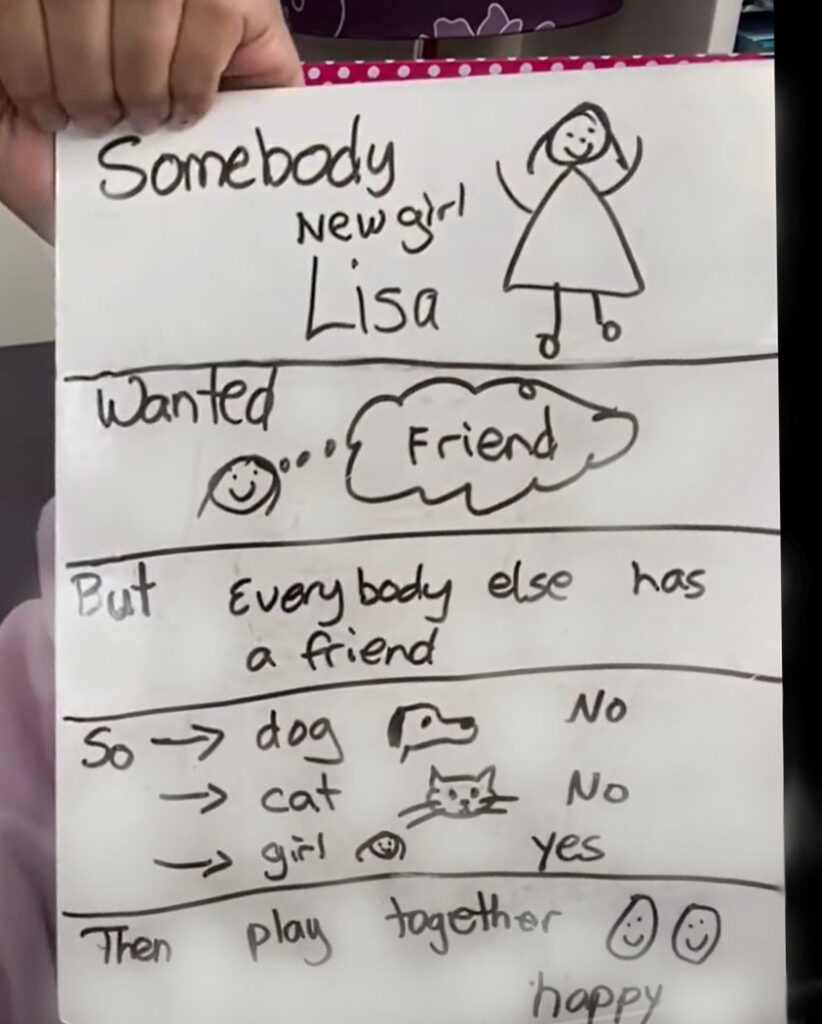 Somebody
New girl
Lisa
Wanted
Friend
But Everybody else has
a friend
So → dog No
→ cat No
→ girl yes
Then play together
happy